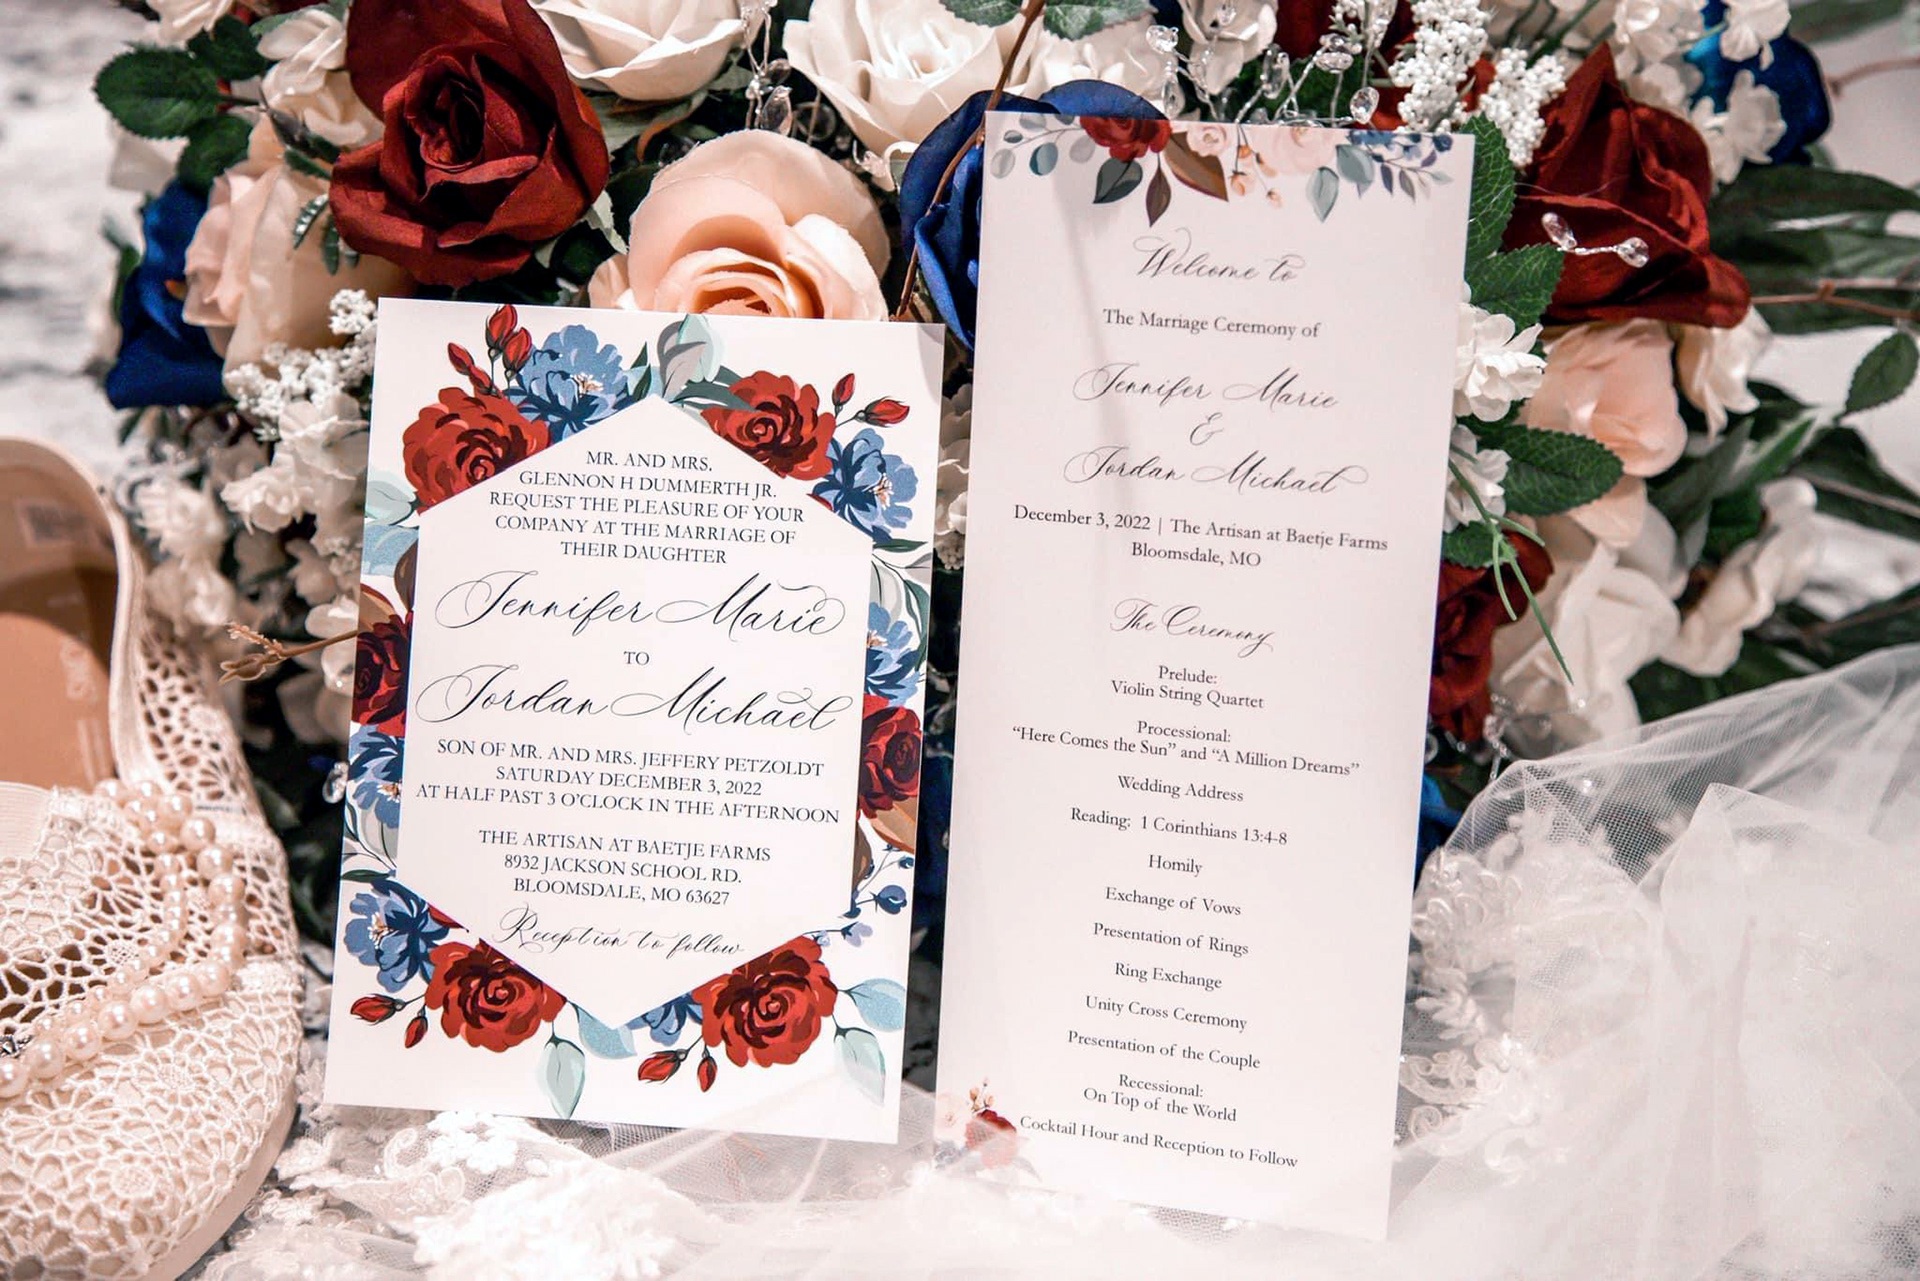 MR. AND MRS.
GLENNON H DUMMERTH JR.
REQUEST THE PLEASURE OF YOUR
COMPANY AT THE MARRIAGE OF
THEIR DAUGHTER
Jennifer Marie
TO
Jordan Michael
SON OF MR. AND MRS. JEFFERY PETZOLDT
SATURDAY DECEMBER 3, 2022
AT HALF PAST 3 O'CLOCK IN THE AFTERNOON
THE ARTISAN AT BAETJE FARMS
8932 JACKSON SCHOOL RD.
BLOOMSDALE, MO 63627
Reception to follow
Welcome to
The Marriage Ceremony of
Jennifer Marie
&
Jordan Michael
December 3, 2022 | The Artisan at Baetje Farms
Bloomsdale, MO
The Ceremony
Prelude:
Violin String Quartet
Processional:
“Here Comes the Sun” and “A Million Dreams”
Wedding Address
Reading: 1 Corinthians 13:4-8
Homily
Exchange of Vows
Presentation of Rings
Ring Exchange
Unity Cross Ceremony
Presentation of the Couple
Recessional:
On Top of the World
Cocktail Hour and Reception to Follow